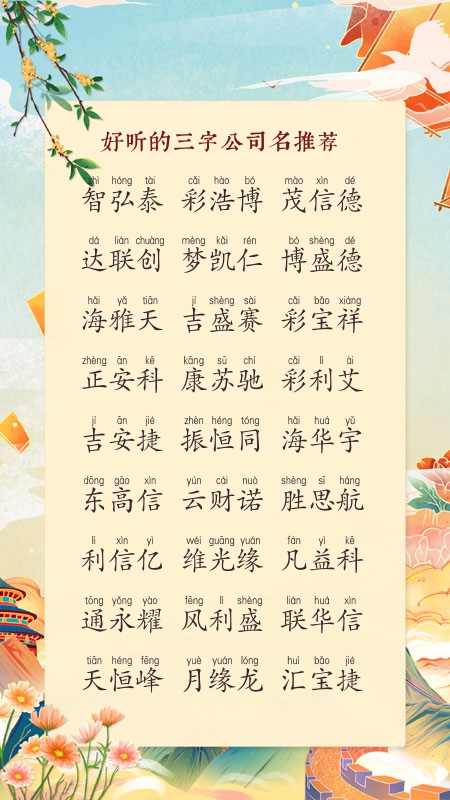 好听的三字公司名推荐
zhì hóng tài cǎi hào bó mào xìn dé
智弘泰 彩浩博 茂信德
dá lián chuàng mèng kǎi rén bó shèng dé
达联创 梦凯仁 博盛德
hǎi yǎ tiān jí shèng sài cǎi bǎo xiáng
海雅天 吉盛赛 彩宝祥
zhèng ān kē kāng sū chí cǎi lì ài
正安科 康苏驰 彩利艾
jí ān jié zhèn héng tóng hǎi huá yǔ
吉安捷 振恒同 海华宇
dōng gāo xìn yún cái nuò shèng sī háng
东高信 云财诺 胜思航
lì xìn yì wéi guāng yuán fán yì kē
利信亿 维光缘 凡益科
tōng yǒng yào fēng lì shèng lián huá xìn
通永耀 风利盛 联华信
tiān héng fēng yuè yuán lóng huì bǎo jié
天恒峰 月缘龙 汇宝捷